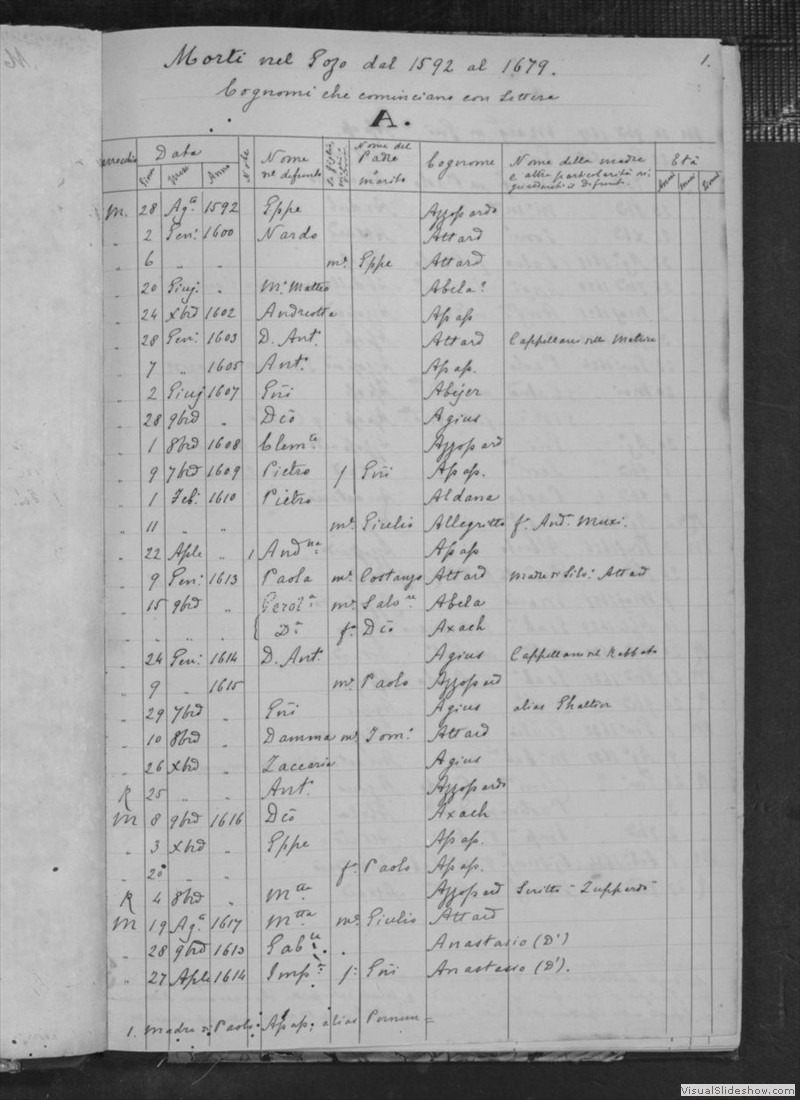 Morti nel Gozo dal 1592 al 1679.
1.
Cognomi che cominciano con lettera
A.
Data Nome del Età
Giorno Mese Anno Note Nome del defunto Padre o marito Cognome Nome della madre e altre particolarità riguardanti il defunto. Anni Mesi Giorni
M. 28 Agᵃ 1592 Eppe Azzopardo
„ 2 Genʳ 1600 Nardo Attard
„ 6 „ „ mᵉ Eppe Attard
„ 20 Giuġ „ Mᵒ Matteo Abela?
„ 24 Xbrē 1602 Andreotta Apap
„ 28 Genʳ 1603 D. Antᵒ Attard Cappellano della Matrice
„ 7 „ 1605 Antᵒ Apap.
„ 2 Giuġ 1607 Gñi Abejer
„ 28 9brē „ Dc̄o Agius
„ 1 8brē 1608 Clemᵗᵉ Azzopard
„ 9 7brē 1609 Pietro f Gñi Apap.
„ 1 Febʳ 1610 Pietro Aldana
„ 11 „ „ mᵉ Giulio Allegritto fᵃ Andᵃ Muxi.
„ 22 Aple „ 1 Andⁿᵃ Apap
„ 9 Genʳ 1613 Paola mᵉ Costanzo Attard Madre di Silvᵒ Attard
„ 15 9brē „ Gerolᵃ mᵉ Salvʳᵉ Abela
„ „ „ „ { Dᵃ fᵃ Dc̄o Axach
„ 24 Genʳ 1614 D. Antᵒ Agius Cappellano del Rabbato
„ 9 „ 1615 mᵉ Paolo Azzopard
„ 29 7brē „ Gñi Agius alias
„ 10 8brē „ Damma mᵉ Tomᵒ Attard
„ 26 Xbrē „ Zaccaria Agius
R 25 „ „ Antᵒ Azzopardo
M 8 9brē 1616 Dc̄o Axach
„ 3 Xbrē „ Eppe Apap.
„ 20 „ „ fᵃ Paolo Apap.
R 4 8brē „ Mᵗᵗᵃ Azzopard Scritto "Zuppardo"
M 19 Agᵃ 1617 Mᵗᵗᵃ mᵉ Giulio Attard
„ 28 9brē 1613 Gabˡᵉ Anastasio (D')
„ 27 Aple 1614 Impᵃ fᵃ Gñi Anastasio (D').
1. Madre di Paolo Apap; alias
VisualSlideshow.com